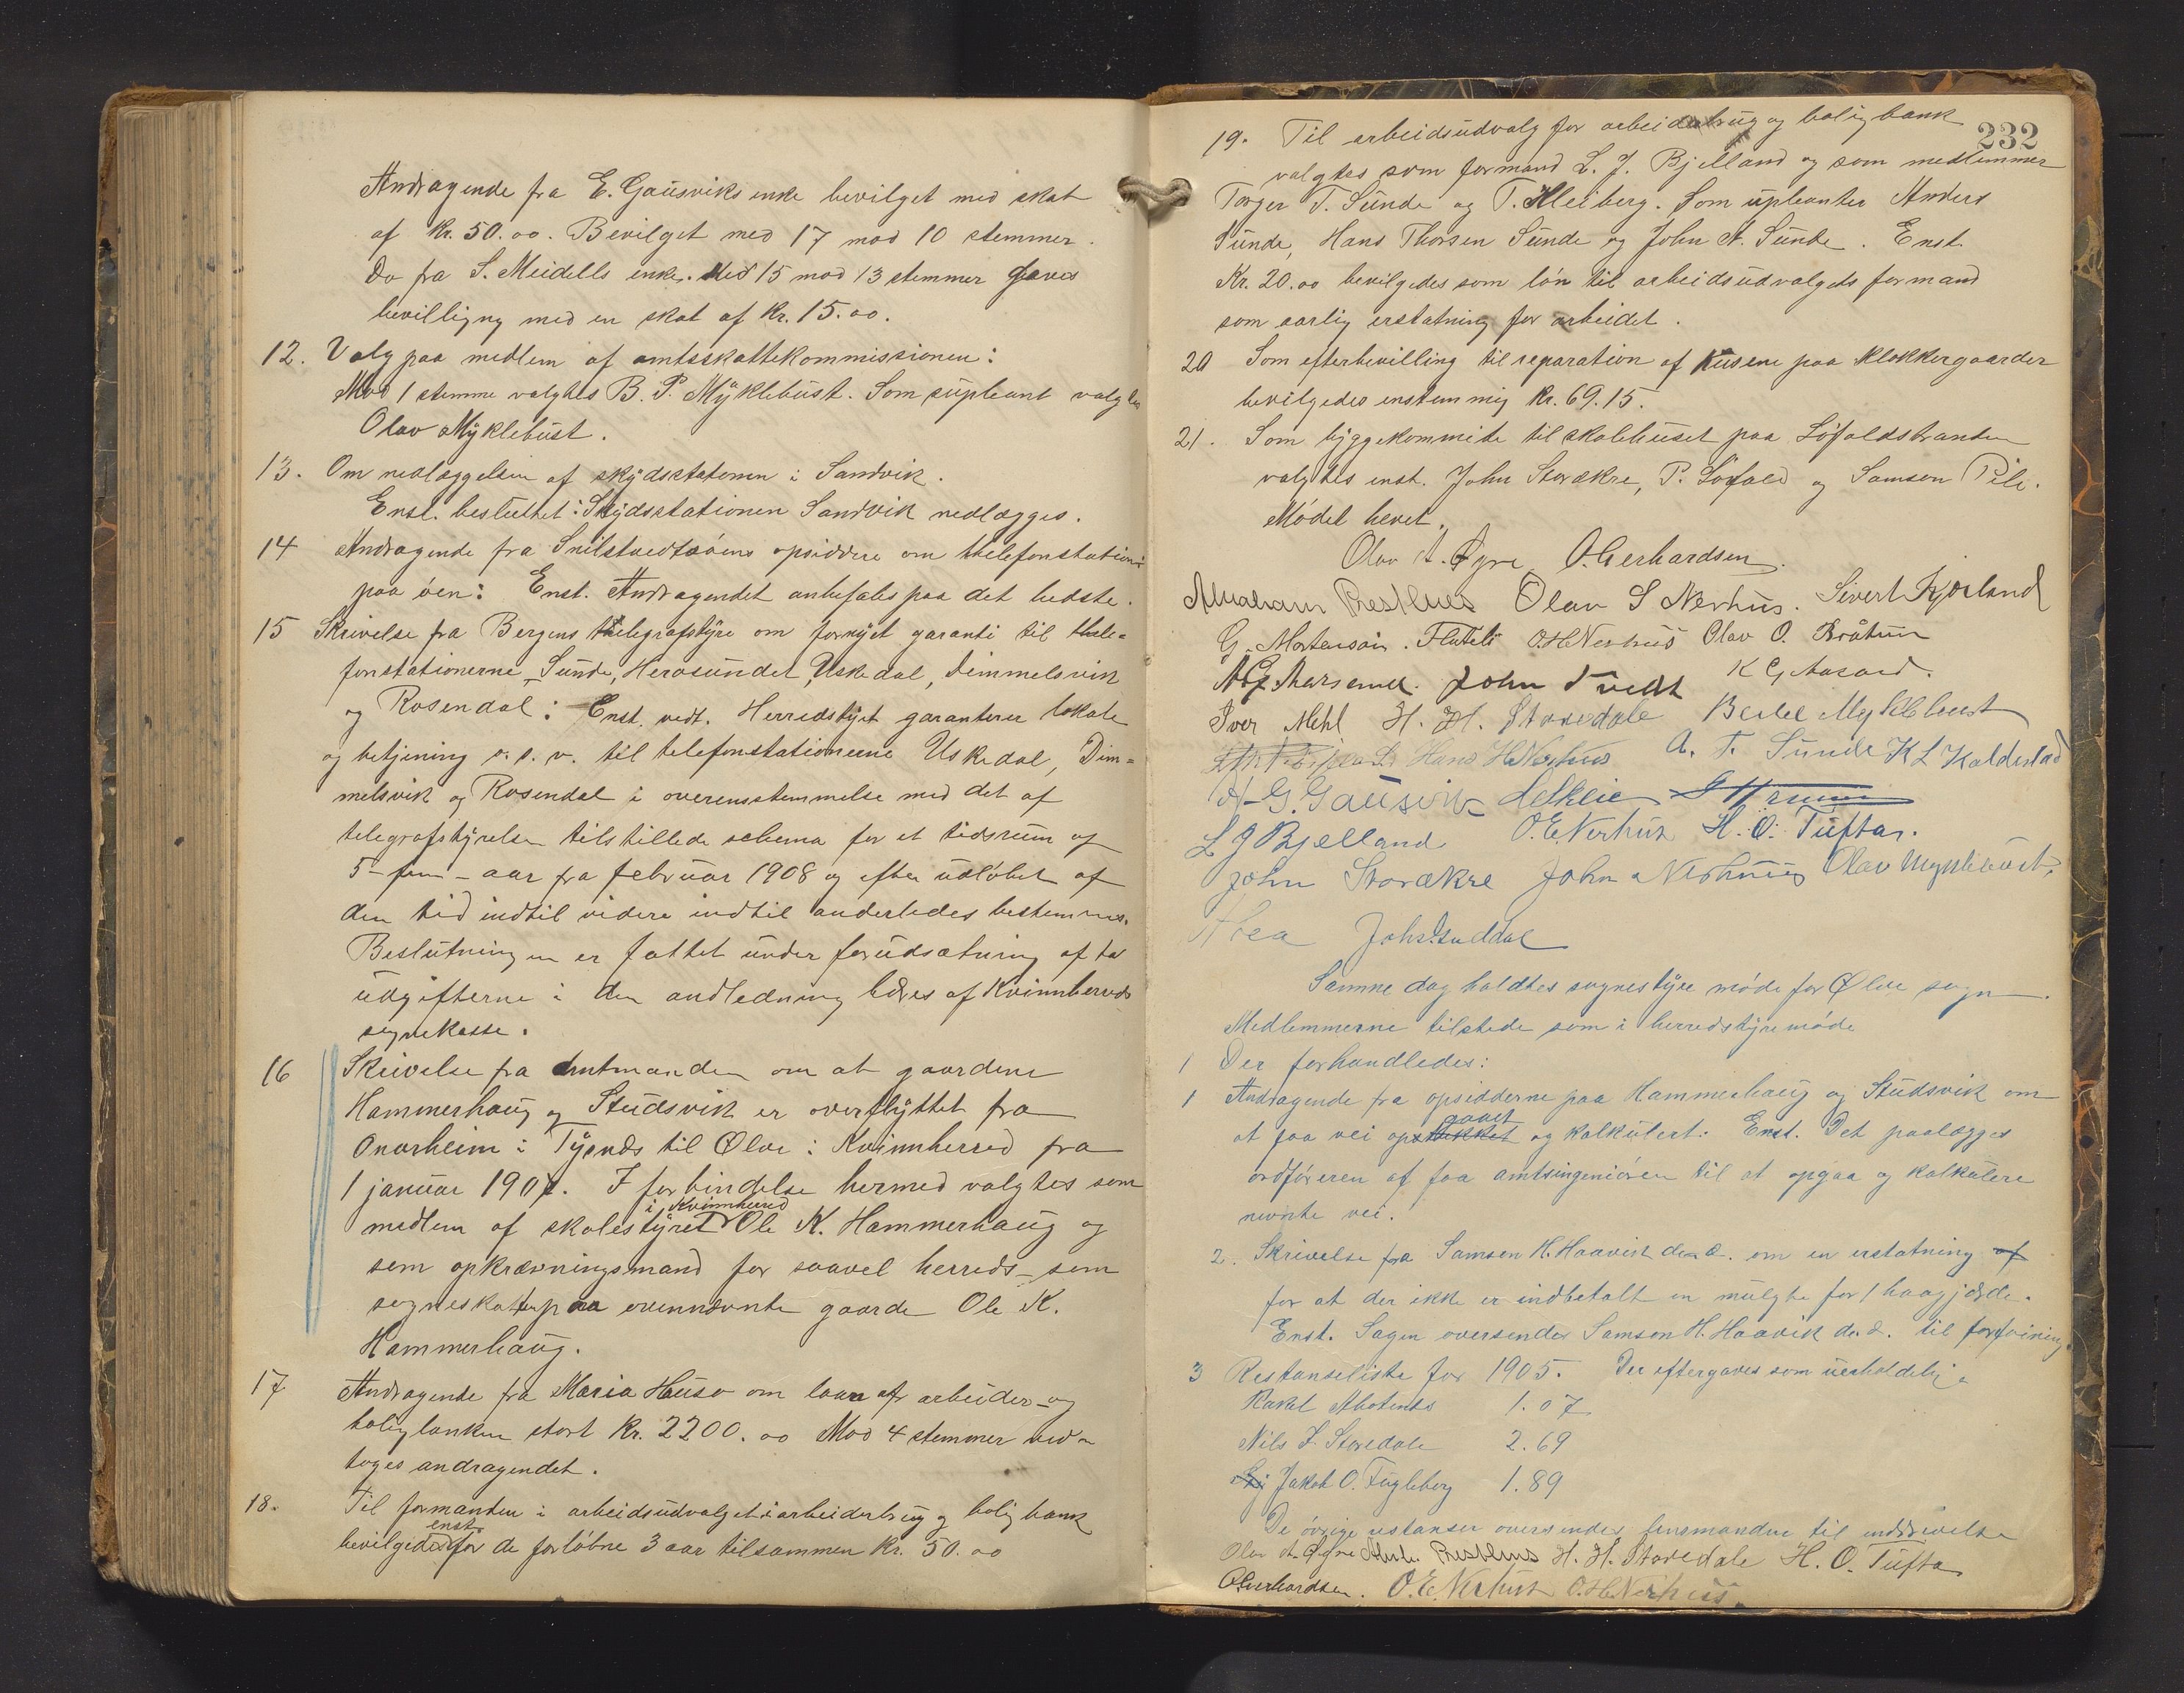 Andragende fra E. Gausviks enke bevilget med skat
af Kr. 50.00. Bevilget med 17 mod 10 stemmer.
Do fra S. Meidells enke. Med 15 mod 13 stemmer gaves
bevilligng med en skat af Kr. 15.00.
12. Valg paa medlem af amtsskattekommissionen:
Mod 1 stemme valgtes B. P. Myklebust. Som supleant valgtes
Olav Myklebust.
13. Om nedlæggelsen af skydsstationen i Sandvik.
Enst. besluttet: Skydsstationen Sandvik nedlægges.
14 Andragende fra Snilstvedtøens opsiddere om telefonstation
paa øen: Enst. Andragendet anbefales paa det bedste.
15 Skrivelse fra Bergens telegrafstyre om fornyet garanti til tele-
fonstationerne Sunde, Herøsundet, Uskedal, Dimmelsvik
og Rosendal: Enst. vedt. Herredstyret garanterer lokale
og betjening o. s. v. til telefonstationerne Uskedal, Dim-
melsvik og Rosendal i overensstemmelse med det af
telegrafstyrelsen tilstillede schema for et tidsrum af
5 - fem - aar fra februar 1908 og efter udløbet af
den tid indtil videre indtil anderledes bestemmes.
Beslutningen er fattet under forudsætning af at
udgifterne i den andledning bæres af Kvinnherreds
sognekasse.
16 Skrivelse fra Amtmanden om at gaardene
Hammerhaug og Studsvik er overflyttet fra
Onarheim i Tysnes til Ølve i Kvinnherred fra
1 januar 1907. I forbindelse hermed valgtes som
medlem af skolestyret i Kvinnherred Ole K. Hammerhaug og
som opkrævningsmand for saavel herreds- som
sogneskat paa ovennævnte gaarde Ole K.
Hammerhaug.
17 Andragende fra Maria Huse om laan af arbeider- og
boligbanken stort Kr. 2200.00 Mod 4 stemmer ved-
toges andragendet.
18. Til formanden i arbeidsudvalget i arbeiderbrug og bolig bank
bevilgedes enst. for de forløbne 3 aar tilsammen Kr. 50.00
232
19. Til arbeidsudvalg for arbeiderbrug og boligbank
valgtes som formand L. J. Bjelland og som medlemmer
Torger T. Sunde og T. Kleiberg. Som supleanter Anders
Sunde, Hans Thorsen Sunde og John A. Sunde. Enst.
Kr. 20.00 bevilgedes som løn til arbeidsudvalgets formand
som aarlig erstatning for arbeidet.
20 Som efterbevilling til reparation af husene paa Klokkergaarden
bevilgedes enstemmig Kr. 69.15.
21. Som byggekommite til skolehuset paa Løfaldstranden
valgtes enst. John Storækre, P. Løfald og Samson Pile.
Mødet hevet.
Olav A. Øyre O. Gerhardsen.
Abraham Prestnes Olav S Nerhus. Sivert Kjærland
G. Mortensøn. Flatebø O. H. Nerhus Olav O. Bråtun
John Tvedt K G Aasard.
Iver Mehl H. H. Storedale Berle Myklebust
Hans H Nerhus A. T. Sunde K L Kaldestad
A. G. Gausvik
L J Bjelland O. E. Nerhus H. O. Tufta.
John Storækre John Nerhus Olav Myklebust.
Johs. Guddal
Samme dag holdtes sognestyre møde for Ølve sogn.
Medlemmerne tilstede som i herredstyremøde
1 Der forhandledes:
1 Andragende fra opsidderne paa Hammerhaug og Studsvik om
at faa vei opgaaet og kalkulert: Enst. Det paalægges
ordføreren at faa amtsingeniøren til at opgaa og kalkulere
nævnte vei.
2. Skrivelse fra Samson H. Haavik d. æ. om en erstatning af
for at der ikke er indbetalt en mulgt for 1 haagjælde.
Enst. Sagen oversendes Samson H. Haavik d. æ. til forføining
3 Restanseliste for 1905. Der eftergaves som uerholdelig
Rakel 1.07
Nils J. Storedale 2.69
Jakob O. Fugleberg 1.89
De øvrige restanser oversendes lensmanden til inddrivelse
Olav A. Øyre Abrh. Prestnes H. H. Storedale H. O. Tufta
O Gerhardsen. O. E. Nerhus O. H. Nerhus.